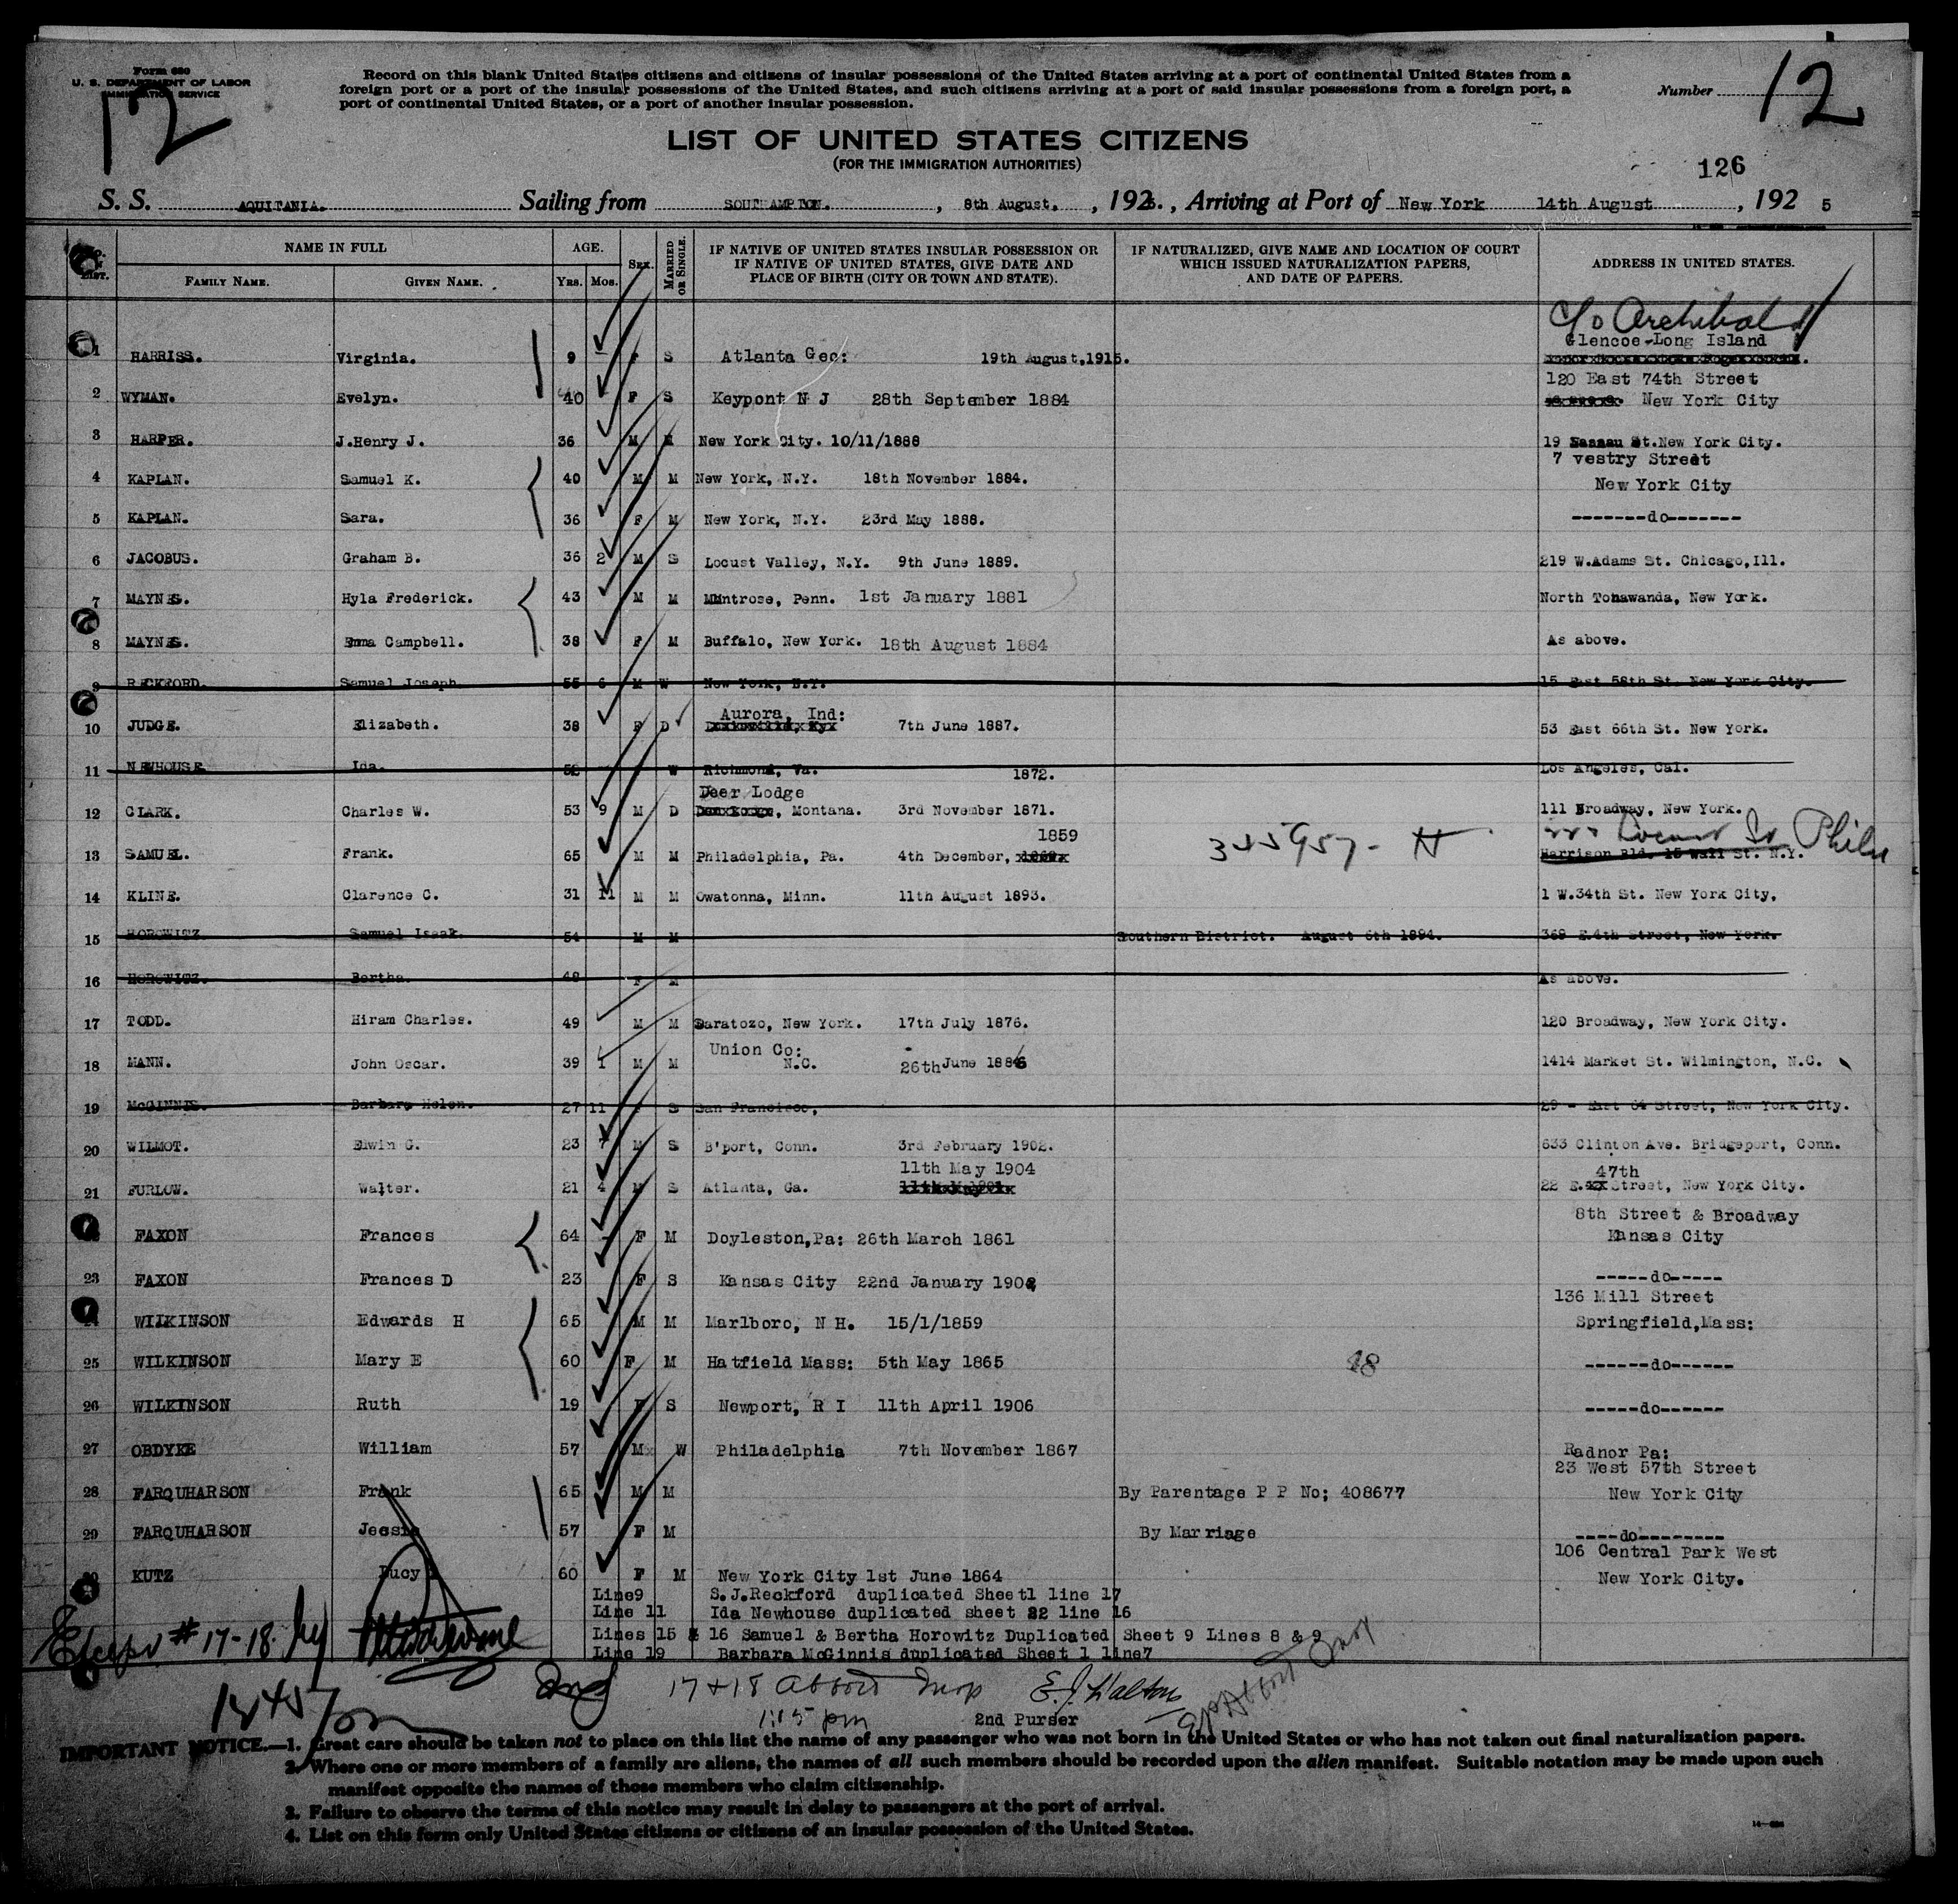 Form 630
U. S. DEPARTMENT OF LABOR
IMMIGRATION SERVICE
12
Record on this blank United States citizens and citizens of insular possessions of the United States arriving at a port of continental United States from a
foreign port or a port of the insular possessions of the United States, and such citizens arriving at a port of said insular possessions from a foreign port, a
port of continental United States, or a port of another insular possession.
Number 12
LIST OF UNITED STATES CITIZENS
(FOR THE IMMIGRATION AUTHORITIES)
126
S. S. AQUITANIA. Sailing from SOUTHAMPTON. , 8th August. , 1925. , Arriving at Port of New York 14th August , 192 5
NAME IN FULL AGE. SEX. MARRIED OR SINGLE. IF NATIVE OF UNITED STATES INSULAR POSSESSION OR IF NATIVE OF UNITED STATES, GIVE DATE AND PLACE OF BIRTH (CITY OR TOWN AND STATE). IF NATURALIZED, GIVE NAME AND LOCATION OF COURT WHICH ISSUED NATURALIZATION PAPERS, AND DATE OF PAPERS. ADDRESS IN UNITED STATES.
LIST. FAMILY NAME. GIVEN NAME. YRS. MOS.
c/o Archibald
Glencoe-Long Island
1 HARRISS. Virginia. 9 - F S Atlanta Geo: 19th August,1915.
120 East 74th Street
2 WYMAN. Evelyn. 40 F S Keypont N J 28th September 1884 New York City
3 HARPER. J.Henry J. 36 M M New York City. 10/11/1888 19 Nassau St.New York City.
7 vestry Street
4 KAPLAN. Samuel K. 40 M M New York, N.Y. 18th November 1884. New York City
5 KAPLAN. Sara. 36 F M New York, N.Y. 23rd May 1888. -------do-------
6 JACOBUS. Graham B. 36 2 M S Locust Valley, N.Y. 9th June 1889. 219 W.Adams St. Chicago,Ill.
7 MAYNES. Hyla Frederick. 43 M M Montrose, Penn. 1st January 1881 North Tonawanda, New York.
8 MAYNES. Emma Campbell. 38 F M Buffalo, New York. 18th August 1884 As above.
9 RECKFORD. Samuel Joseph 55 6 M W New York, N.Y. 15 East 58th St. New York City.
Aurora, Ind:
10 JUDGE. Elizabeth. 38 F D 7th June 1887. 53 East 66th St. New York.
11 NEWHOUSE Ida. 52 F W Richmond, Va. 1872. Los Angeles, Cal.
Deer Lodge
12 CLARK. Charles W. 53 9 M D , Montana. 3rd November 1871. 111 Broadway, New York.
1859
13 SAMUEL. Frank. 65 M M Philadelphia, Pa. 4th December, 345957- N Locust St Phila
Harrison Bld. 15 Wall St. N.Y.
14 KLINE. Clarence C. 31 11 M M Owatonna, Minn. 11th August 1893. 1 W.34th St. New York City,
15 HOROWITZ Samuel Isaak. 54 M M Southern District. August 6th 1894. 369 E.4th Street, New York.
16 HOROWITZ. Bertha. 48 F M As above.
17 TODD. Hiram Charles. 49 M M Saratozo, New York. 17th July 1876. 120 Broadway, New York City.
Union Co:
18 MANN. John Oscar. 39 1 M M N.C. 26th June 1886 1414 Market St. Wilmington, N.C.
19 McGINNIS. Barbara Helen. 27 11 F S San Francisco, 29 - East 64 Street, New York City.
20 WILMOT. Elwin C. 23 7 M S B'port, Conn. 3rd February 1902. 633 Clinton Ave. Bridgeport, Conn.
11th May 1904 47th
21 FURLOW. Walter. 21 4 M S Atlanta, Ga. 22 E. Street, New York City.
8th Street & Broadway
FAXON Frances 64 - F M Doyleston,Pa: 26th March 1861 Kansas City
23 FAXON Frances D 23 F S Kansas City 22nd January 1902 -----do-----
136 Mill Street
24 WILKINSON Edwards H 65 M M Marlboro, N H. 15/1/1859 Springfield,Mass:
25 WILKINSON Mary E 60 F M Hatfield Mass: 5th May 1865 18 ------do------
26 WILKINSON Ruth 19 F S Newport, R I 11th April 1906 -----do------
27 OBDYKE William 57 M W Philadelphia 7th November 1867 Radnor Pa:
23 West 57th Street
28 FARQUHARSON Frank 65 M M By Parentage P P No; 408677 New York City
29 FARQUHARSON Jessie 57 F M By Marriage ----do--------
106 Central Park West
30 KUTZ Lucy 60 F M New York City 1st June 1864 New York City.
Line9 S.J.Reckford duplicated Sheet1 line 17
Line 11 Ida Newhouse duplicated sheet 22 line 16
Lines 15 & 16 Samuel & Bertha Horowitz Duplicated Sheet 9 Lines 8 & 9
Line 19 Barbara McGinnis duplicated Sheet 1 line7
Except # 17-18. by
Insp 17+18 Abbott Insp E.J.Walton
1:15 pm 2nd Purser
IMPORTANT NOTICE.—1. Great care should be taken not to place on this list the name of any passenger who was not born in the United States or who has not taken out final naturalization papers.
2. Where one or more members of a family are aliens, the names of all such members should be recorded upon the alien manifest. Suitable notation may be made upon such
manifest opposite the names of those members who claim citizenship.
3. Failure to observe the terms of this notice may result in delay to passengers at the port of arrival.
4. List on this form only United States citizens or citizens of an insular possession of the United States.